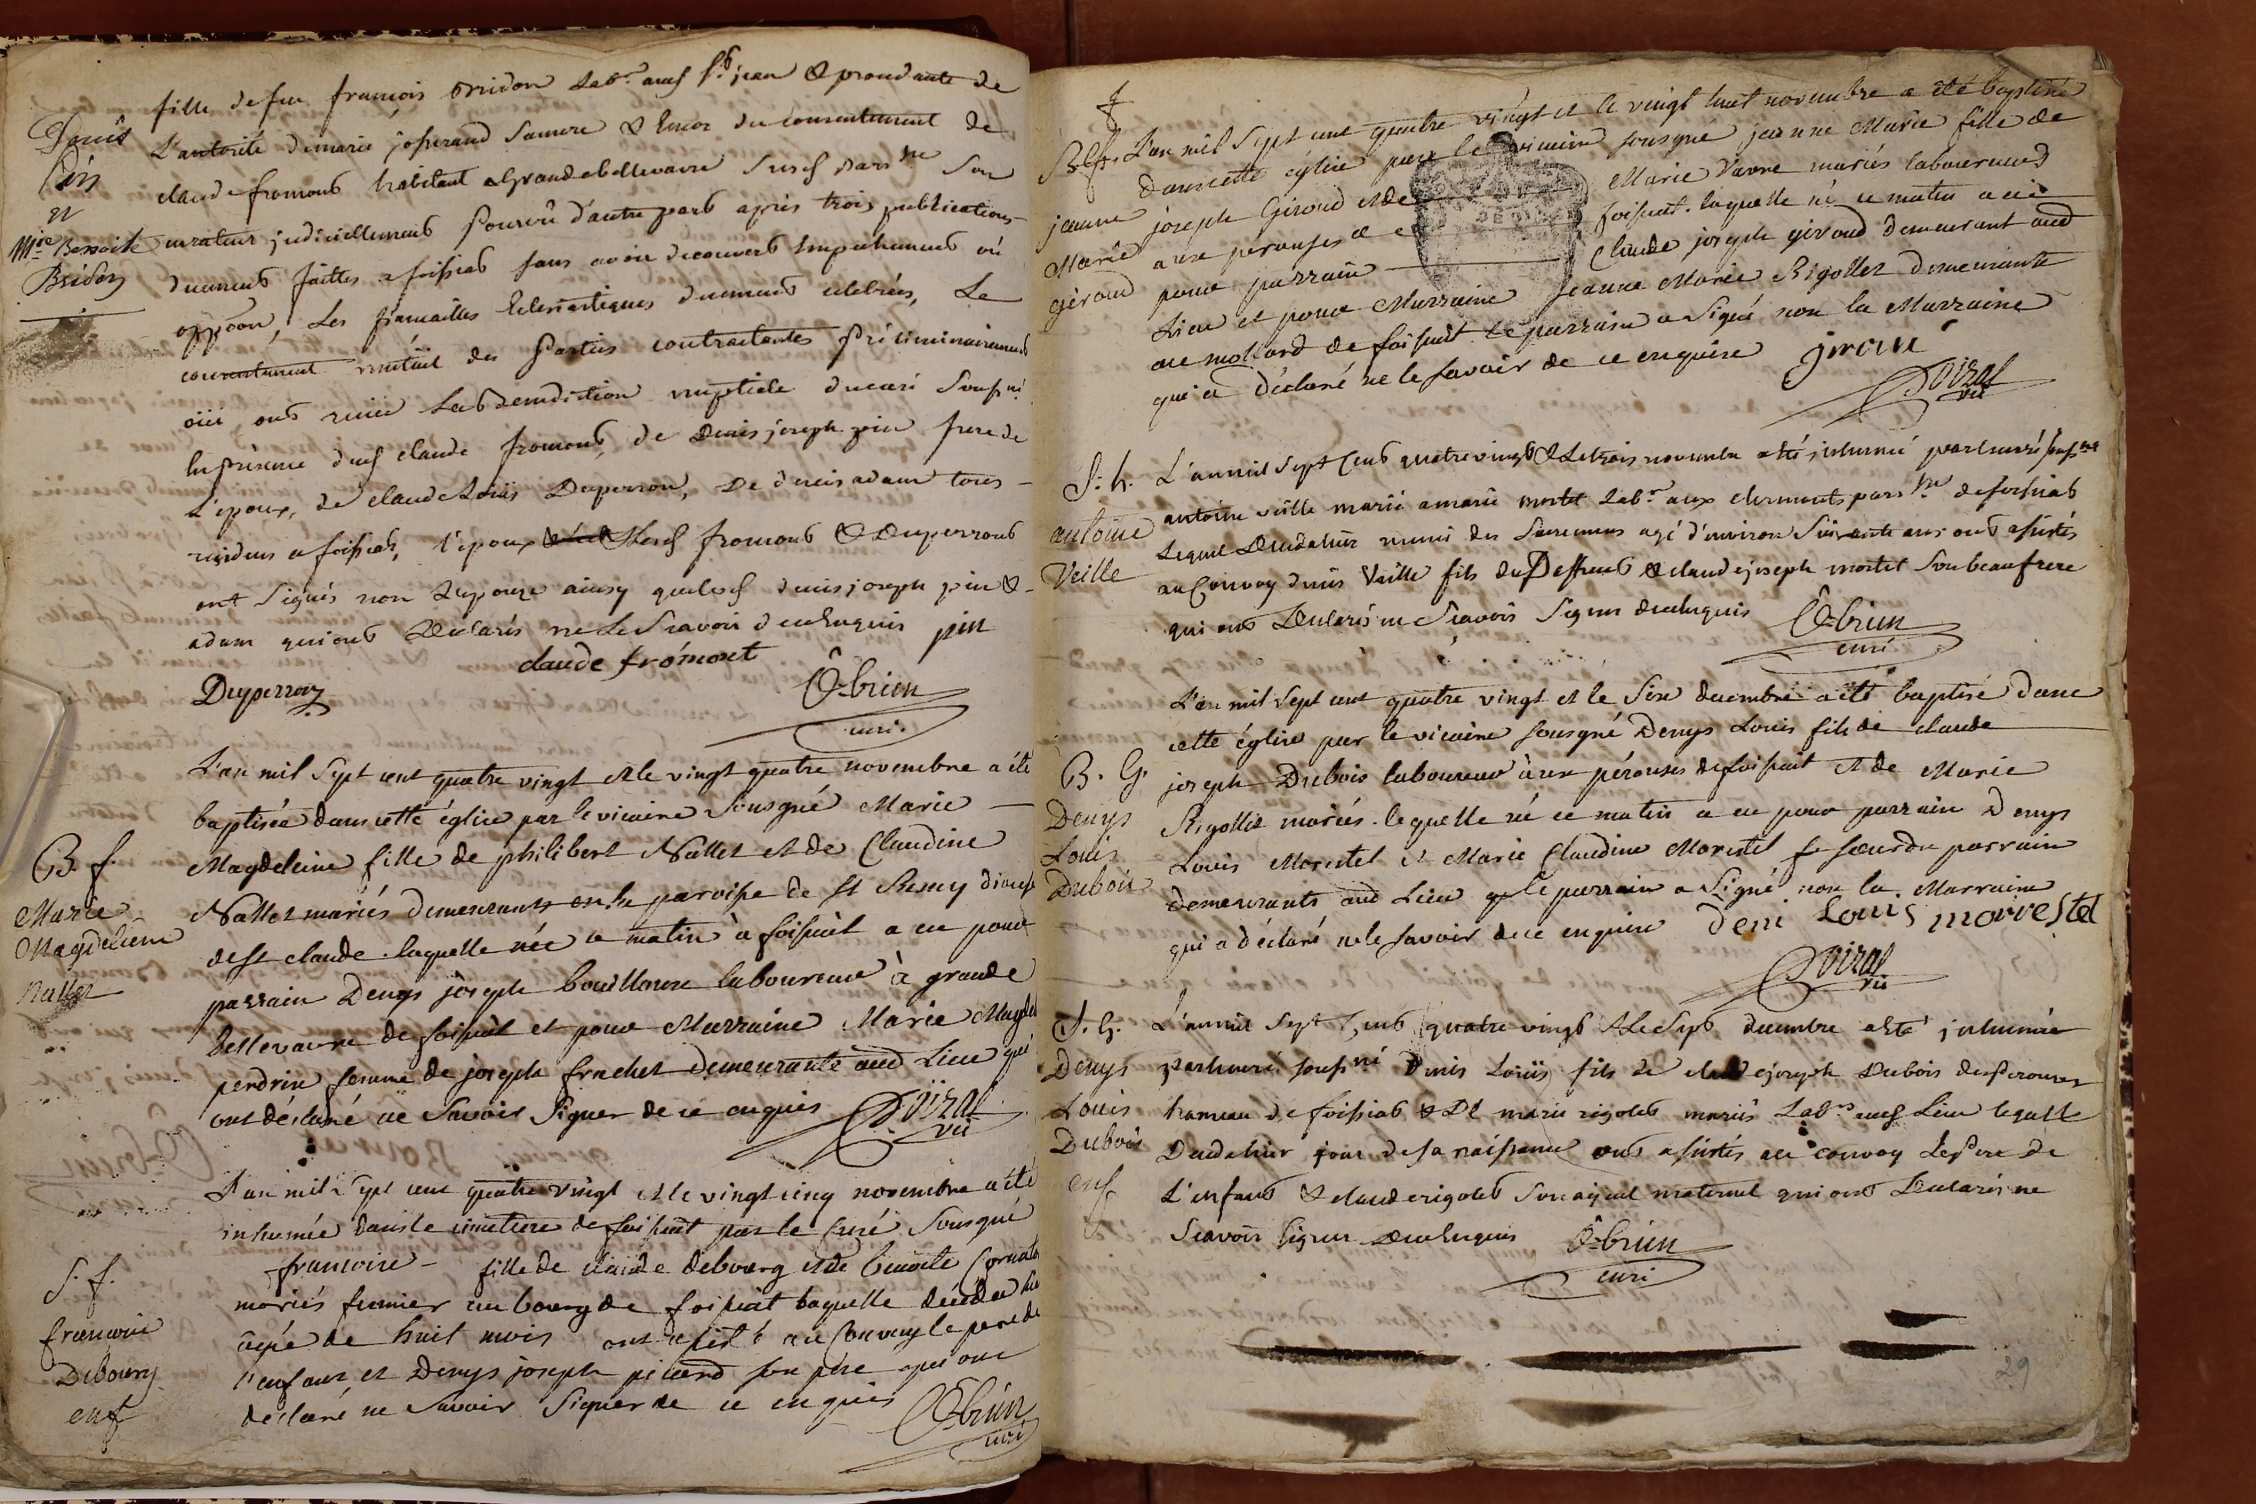 fille de feu françois bridon Lab.r aud St jean & procedante de
L'autorité de marie josserand sa mere & encor du consentement de
claude fromont habitant a Grandebellevavre susd parss.e son
curateur judiciellement pourvû d'autre part après trois publications
duement faittes a foissiat sans avoir decouvert Empechement où
oppôon, Les fiancailles Eclesiastiques duement celebrées, Le
consentement mutuel des parties contractantes préliminairement
oüi ont reçû la benediction nuptiale du curé souss.né
En présence dud claude fromont, de denis joseph pin frere de
L'époux, de claude Loüis Duperron, De denis adam tous
residens a foissiat, l'époux Lesd fromont & Duperron
ont Signés non L'epouse ainsy que lesd denis joseph pin &
adam qui ont Declarés ne Le Sçavoir de ce Enquis pin
claude fromont
Duperron
O-brien
curé
Denis
Pin
et
Mie Benoite
Bridon
L'an mil Sept cent quatre vingt et le vingt quatre novembre a été
baptisée dans cette église par le vicaire Sousigné Marie
Magdeleine fille de philibert Nallet et de Claudine
Nallet mariés demeurants en la paroisse de st Remy diocese
de st claude. laquelle née ce matin à foissiat a eu pour
parrain Denys joseph bouilloux laboureur à grande
bellevavre de foissiat et pour Marraine Marie Magdel
perdrix femme de joseph frachet demeurante aud Lieu qui
ont déclaré ne Savoir Signer de ce enquis Poizat
vic
B. f.
Marie
Magdeleine
Nallet
L'an mil Sept cent quatre vingt et le vingt cinq novembre a été
inhumée dans le cimetiere de foissiat par le Curé Sousigné
francoise fille de claude debourg et de benoite Cornaton
mariés fermier au bourg de foissiat laquelle décédée hier
âgée de huit mois ont assisté au Convoy le pere de
l'enfant et Denys joseph picard son pere qui ont
déclaré ne Savoir Signer de ce enquis O-brien
curé
S. f.
francoise
Debourg
enf
L'an mil Sept cent quatre vingt et le vingt huit novembre a été baptisée
dans cette église par le vicaire sousigné jeanne Marie fille de
joseph Giroud et de Marie Varne mariés laboureurs
aux pérouses de foissiat. laquelle né ce matin a eu
pour parrain Claude joseph giroud demeurant aud
Lieu et pour Marraine Jeanne Marie Rigollet demeurante
au mollard de foissiat. Le parrain a Signé non la Marraine
qui a déclaré ne le savoir de ce enquise girou
Poizat
vic
B. f.
jeanne
Marie
géroud
L'an mil Sept Cent quatre vingt & Le trois novembre a été inhumé par le curé souss.né
antoine veille marié a marie mortel Lab.r aux clermonts parss.e de foissiat
Lequel Decedat hier muni des Sacremens agé d'environ Soixante ans ont assistés
au Convoy denis Veille fils du Deffunt & claude joseph mortel son beau frere
qui ont Declarés ne Sçavoir Signer de ce Enquis O-brien
curé
S. h.
antoine
Veille
L'an mil Sept cent quatre vingt et le Six decembre a été baptisé dans
cette église par le vicaire sousigné Denys Louis fils de claude
joseph Dubois laboureur àux pérouses de foissiat et de Marie
Rigollet mariés. lequelle né ce matin a eu pour parrain Denys
Louis Morestel et Marie Claudine Morestel soeur du parrain
demeurants aud Lieu le parrain a Signé non la Marraine
qui a déclaré ne le savoir de ce enquise deni Louis morrestel
Poizat
vic
B. G.
Denys
Louis
Dubois
L'an mil Sept Cent quatre vingt & Le Sept decembre a été inhumée
par le curé souss.né Denis Loüis fils de claude joseph Dubois des Perouses
hameau de foissiat & De marie rigolet mariés Lab.rs aud Lieu lequelle
Decedat hier jour de sa naissance ont assistés au convoy Le Pere de
L'enfant & claude rigolet son ayeul maternel qui ont Declarés ne
Sçavoir Signer de ce Enquis O-brien
curé
S. G.
Denys
Louis
Dubois
enf
29